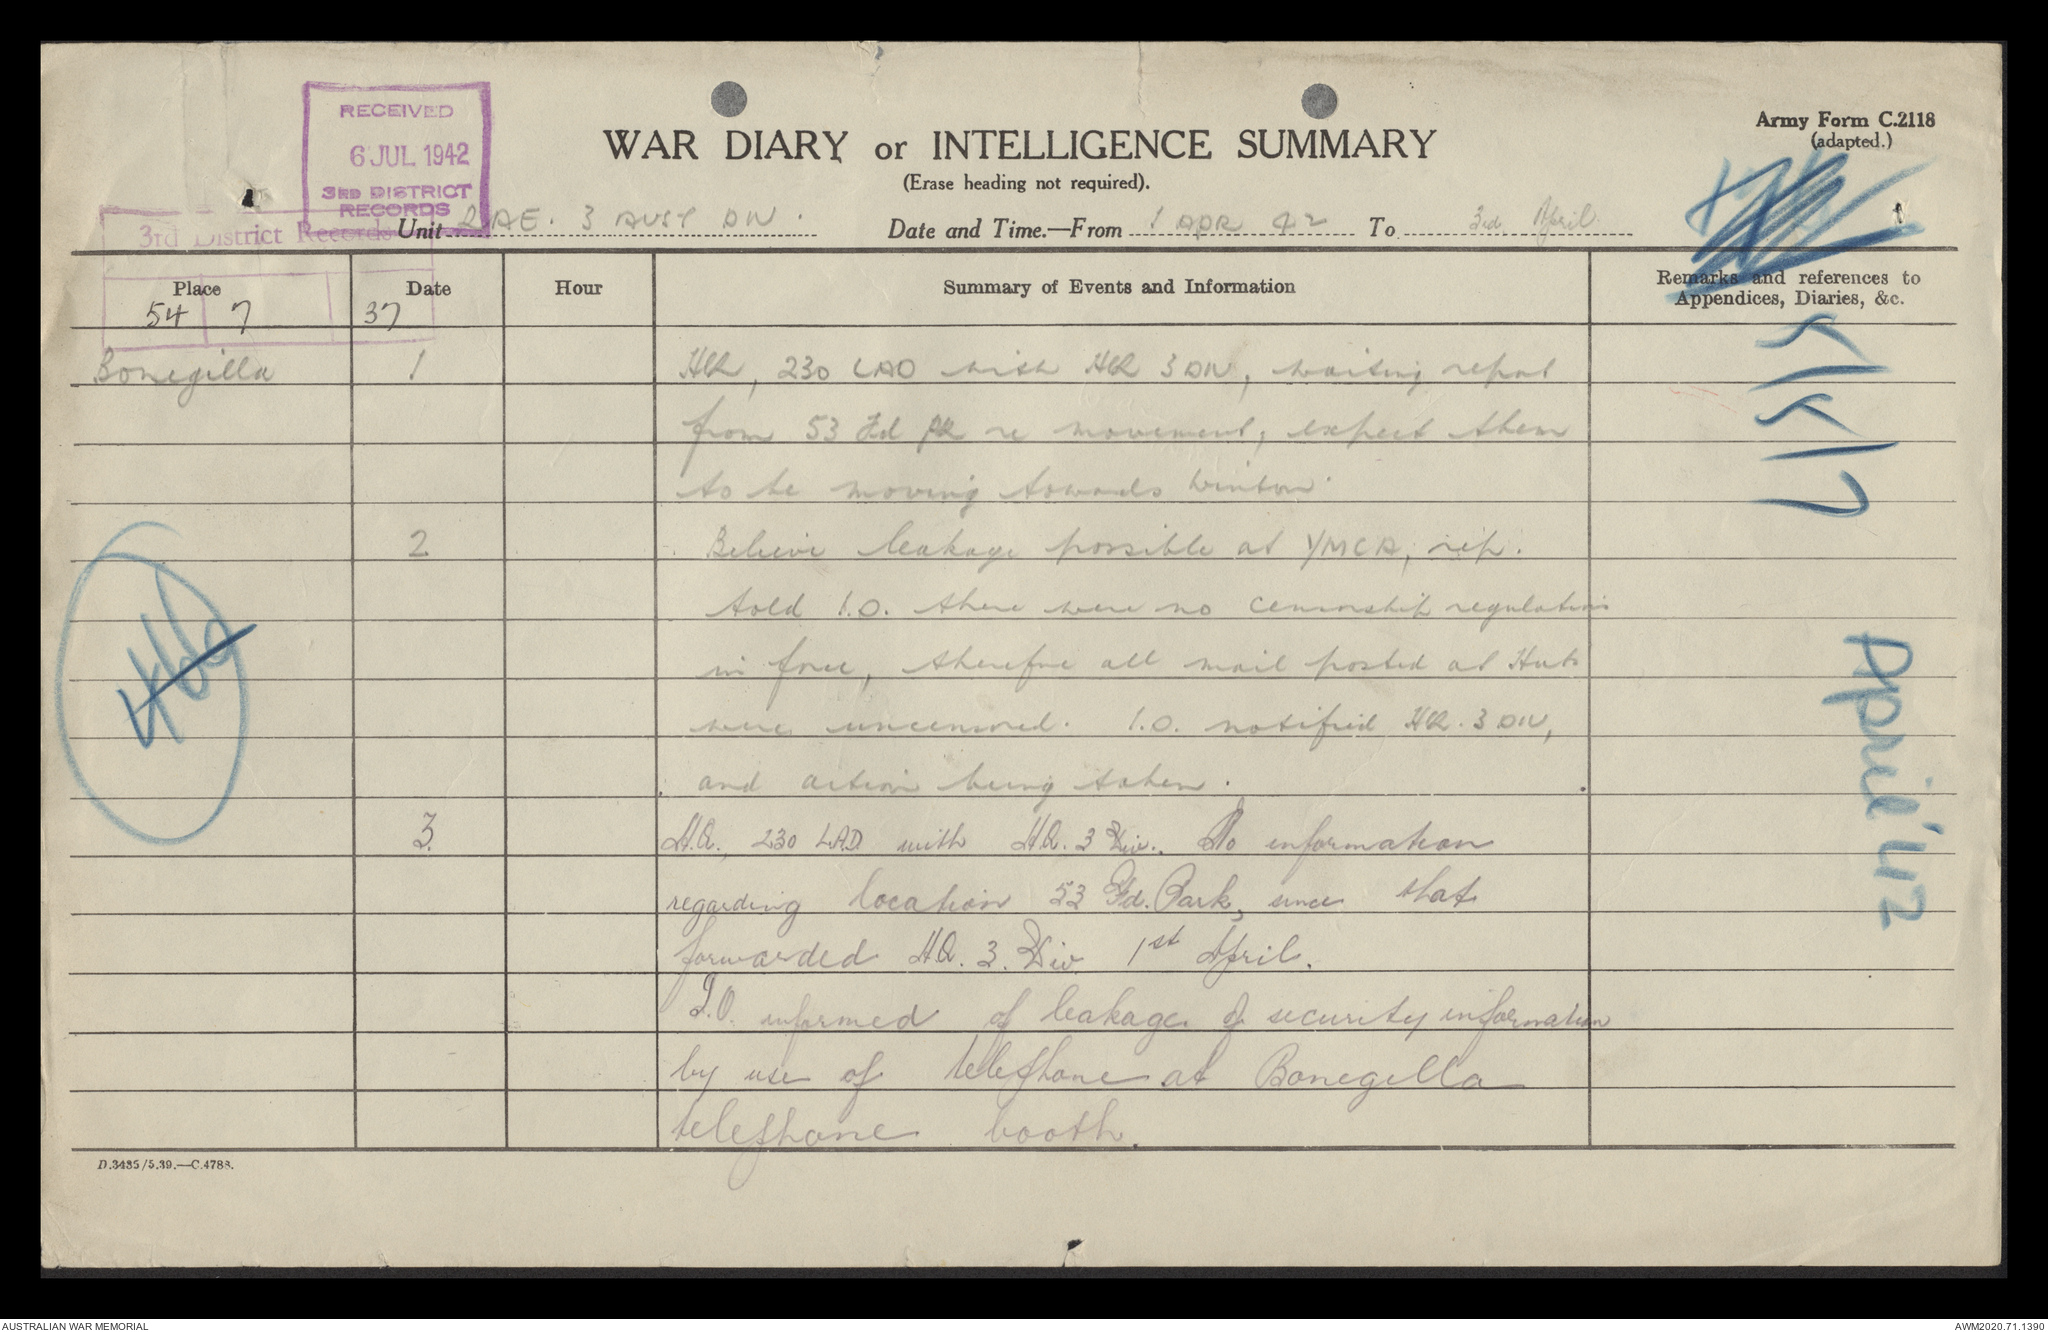 RECEIVED
6 JUL 1942
3RD DISTRICT
RECORDS
3rd District Records
Army Form C.2118
(adapted.)
WAR DIARY or INTELLIGENCE SUMMARY
(Erase heading not required).
Unit RAE. 3 AUST DIV. Date and Time.—From 1 APR 42 To 3rd April
Place Date Hour Summary of Events and Information Remarks and references to Appendices, Diaries, &c.
54 7 37
5/5/7
April '42
466
Bonegilla 1 HQ, 230 LAD with HQ 3 DIV, waiting report
from 53 Fd PK re movement, expect them
to be moving towards Winton.
2 Believe leakage possible at YMCA, rep.
told I.O. there were no censorship regulations
in force, therefore all mail posted at Huts
were uncensored. I.O. notified HQ. 3 DIV,
and action being taken.
3. H.Q., 230 LAD with H.Q. 3 Div. No information
regarding location 53 Fd. Park, since that
forwarded H.Q. 3. Div 1st April.
I.O. informed of leakage of security information
by use of telephone at Bonegilla
telephone booth.
D.3485/5.39.—C.4788.
AUSTRALIAN WAR MEMORIAL
AWM2020.71.1390